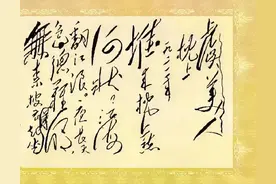 虞美人
枕上
一九二一年
堆来枕上愁
何状，江海
翻波浪。夜长天
色总难明
無奈披衣